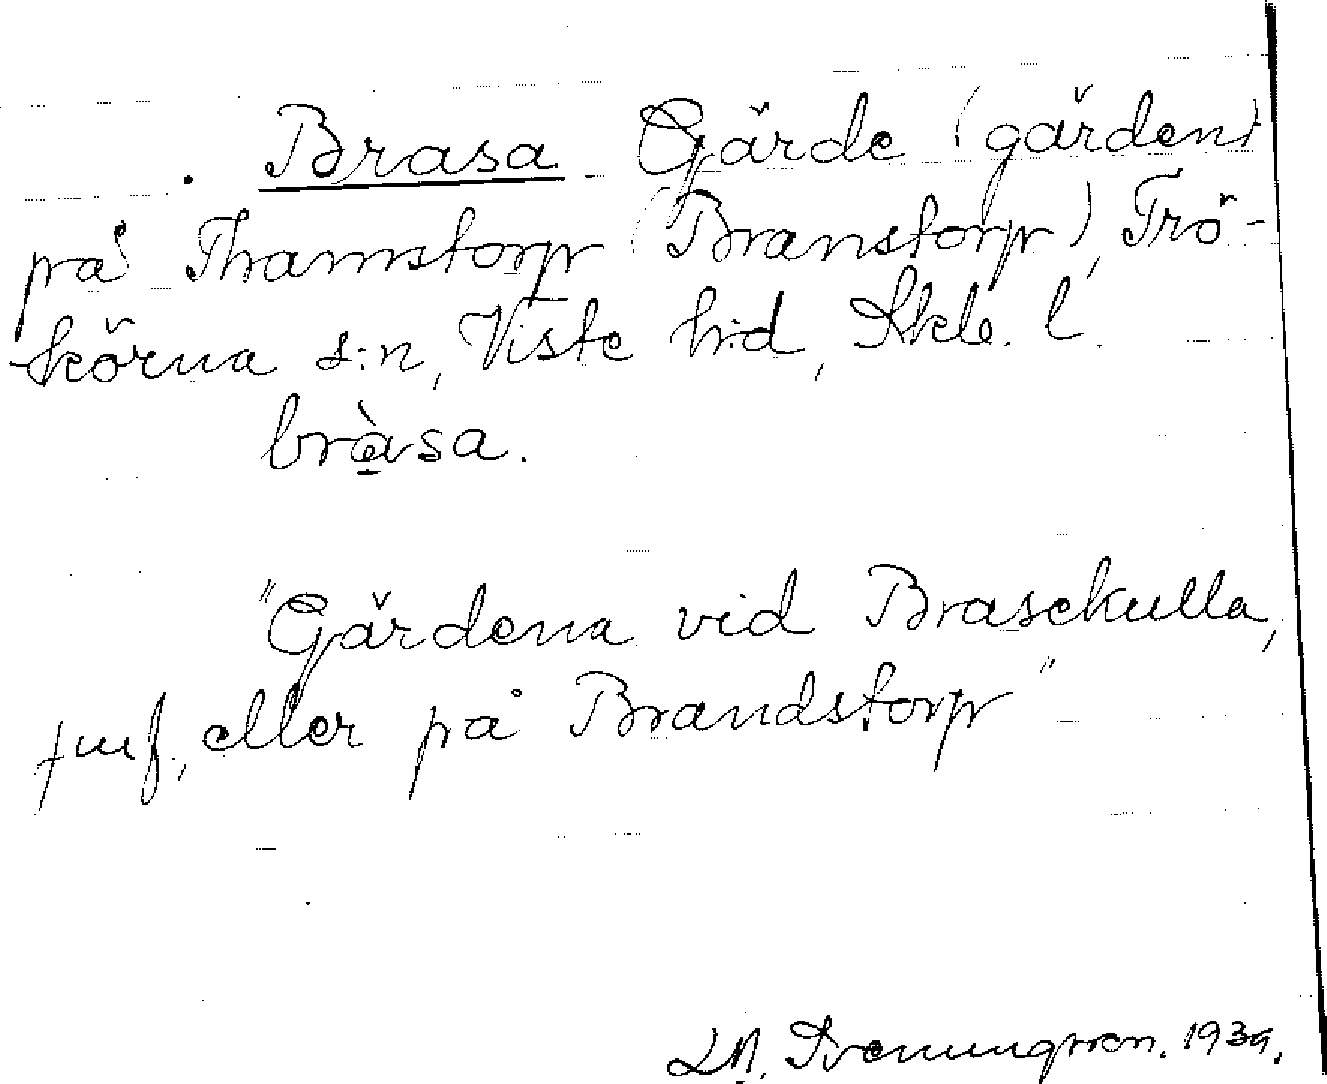 . Brasa Gärde (gärden)
på Thamstorp (Branstorp), Trö-
körna s:n, Viste hd, Skbs. l.
bràsa.
"Gärdena vid Brasekulla,
jmf., eller på Brandstorp"
1939.